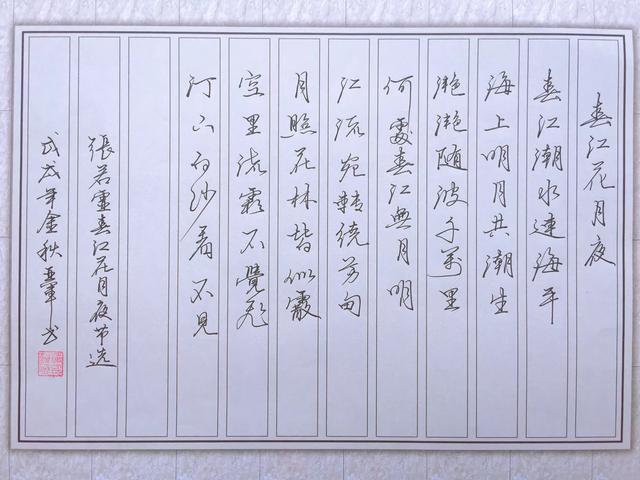 春江花月夜
春江潮水連海平
海上明月共潮生
滟滟随波千萬里
何處春江無月明
江流宛轉繞芳甸
月照花林皆似霰
空里流霜不覺飛
汀上白沙看不見
張若虛春江花月夜节选
戊戌年金秋书